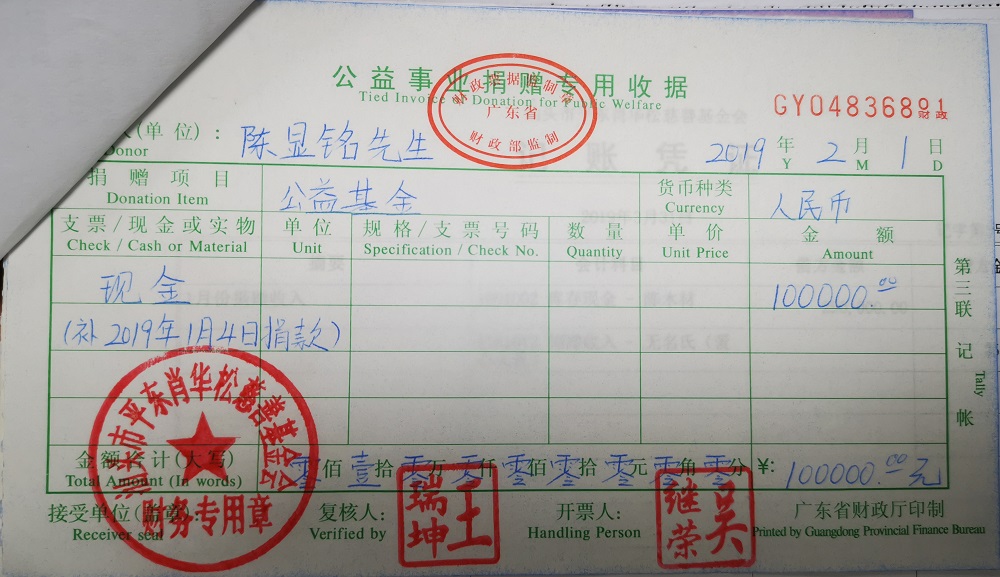 公益事业捐赠专用收据
Tied Invoice of Donation for Public Welfare
财政票据监制章
广东省
财政部监制
GY04836891
财政
人(单位): 陈显铭先生 2019年2月1日
Donor Y M D
捐赠项目 公益基金 货币种类 人民币
Donation Item Currency
支票/现金或实物 单位 规格/支票号码 数量 单价 金额
Check / Cash or Material Unit Specification / Check No. Quantity Unit Price Amount
现金 100000.00
(补2019年1月4日捐款)
第三联 记帐
Tally
金额合计(大写) 零佰壹拾零万零仟零佰零拾零元零角零分 ¥: 100000.00元
Total Amount (In words)
市平东肖华松慈善基金会
财务专用章
接受单位(盖章): 复核人: 王瑞坤 开票人: 吴继荣 广东省财政厅印制
Receiver seal Verified by Handling Person Printed by Guangdong Provincial Finance Bureau